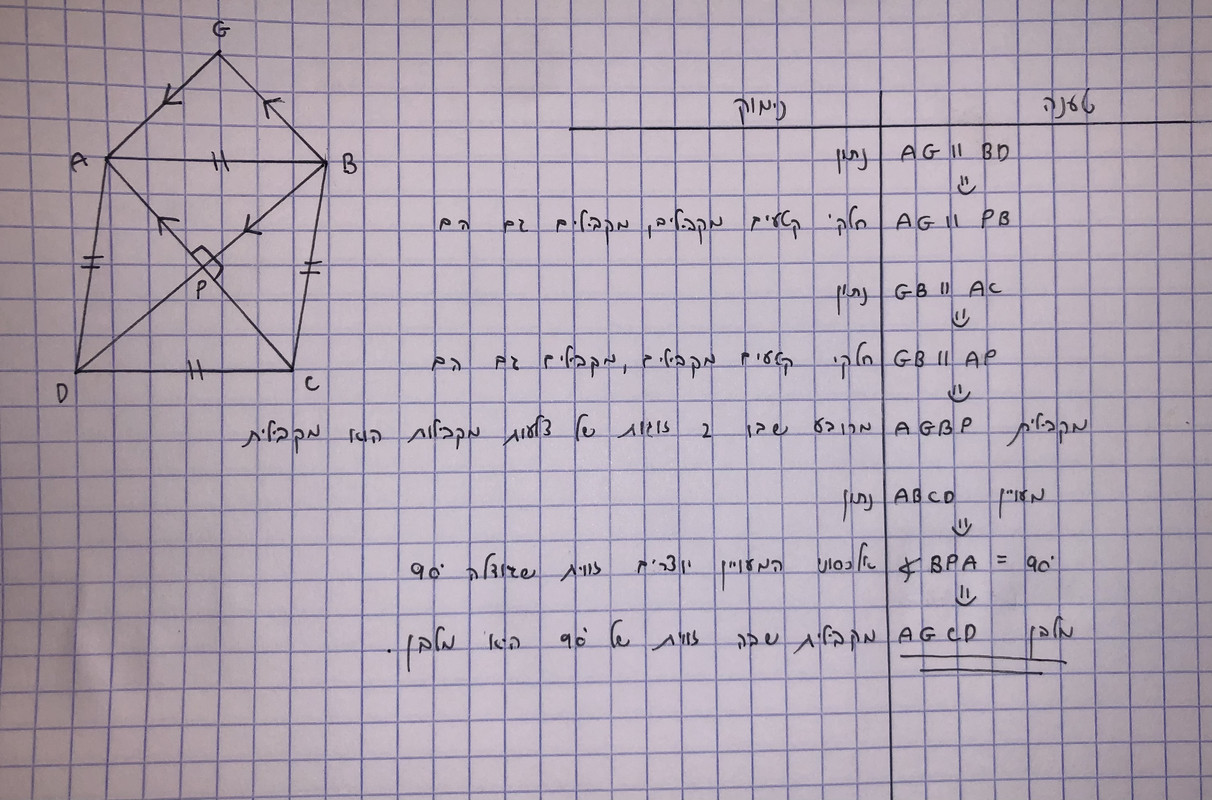 G
A
B
P
D
C
טענה נימוק
AG || BD נתון
⇓
AG || PB חלקי קטעים מקבילים, מקבילים גם הם
GB || AC נתון
⇓
GB || AP חלקי קטעים מקבילים, מקבילים גם הם
⇓
AGBP מקבילית מרובע שבו 2 זוגות של צלעות מקבילות הוא מקבילית
ABCD מעויין נתון
⇓
∢BPA = 90° אלכסוני המעויין יוצרים זווית שגודלה 90°
⇓
AGCD מלבן מקבילית שבה זווית של 90° היא מלבן.